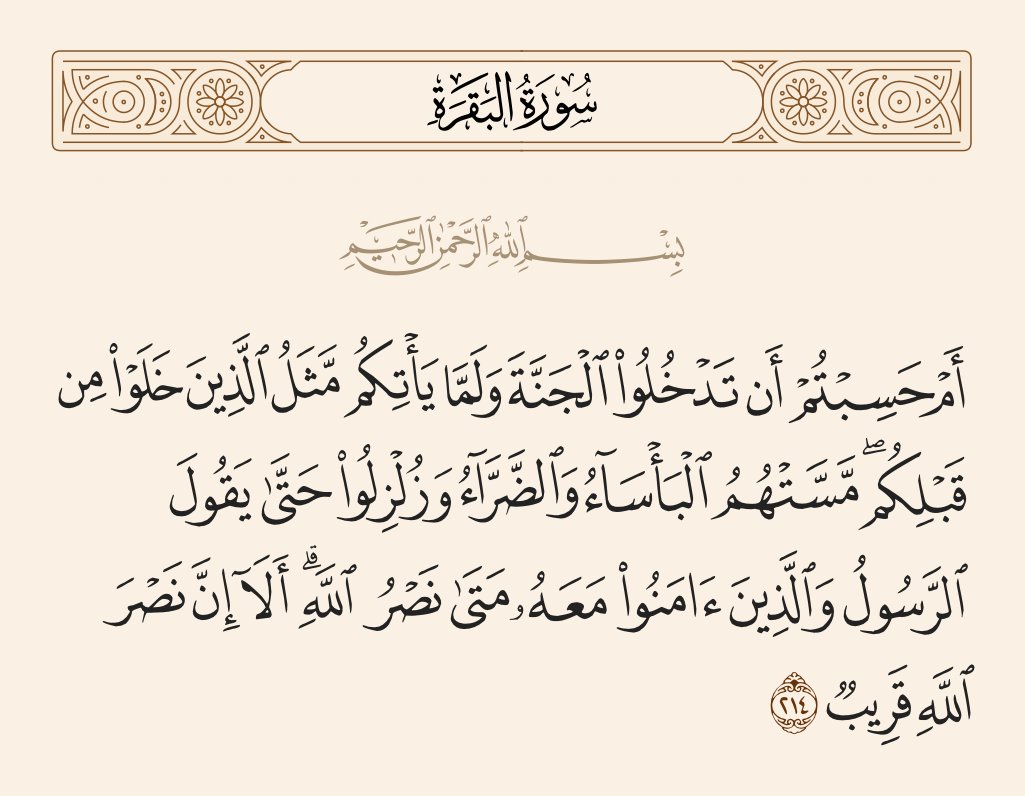 سُورَةُ البَقَرَةِ
بِسْمِ ٱللَّهِ ٱلرَّحْمَٰنِ ٱلرَّحِيمِ
أَمْ حَسِبْتُمْ أَن تَدْخُلُوا۟ ٱلْجَنَّةَ وَلَمَّا يَأْتِكُم مَّثَلُ ٱلَّذِينَ خَلَوْا۟ مِن
قَبْلِكُم ۖ مَّسَّتْهُمُ ٱلْبَأْسَآءُ وَٱلضَّرَّآءُ وَزُلْزِلُوا۟ حَتَّىٰ يَقُولَ
ٱلرَّسُولُ وَٱلَّذِينَ ءَامَنُوا۟ مَعَهُۥ مَتَىٰ نَصْرُ ٱللَّهِ ۗ أَلَآ إِنَّ نَصْرَ
ٱللَّهِ قَرِيبٌ ٢١٤